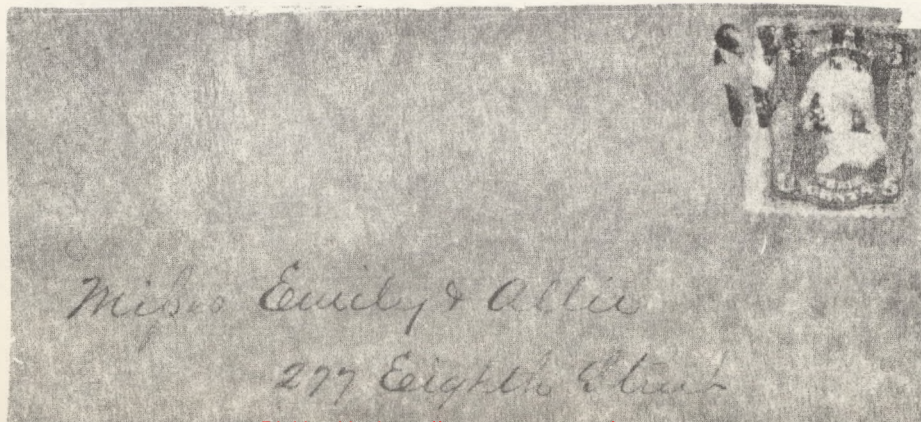 Misses Emily & Allie
277 Eighth Street